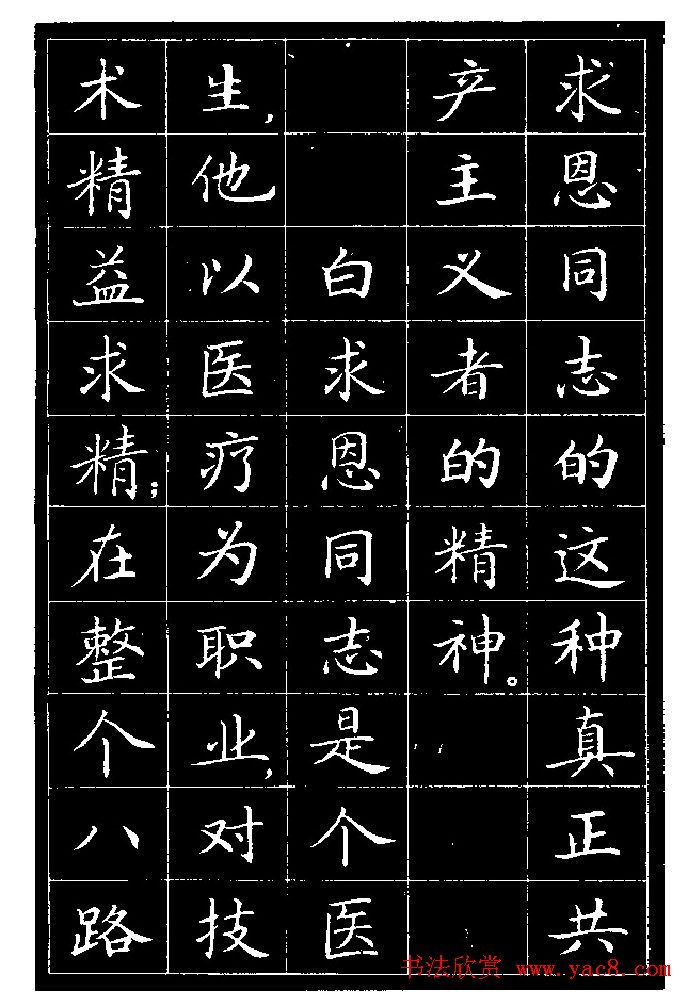 求恩同志的这种真正共
产主义者的精神。
白求恩同志是个医
生,他以医疗为职业,对技
术精益求精;在整个八路
书法欣赏 www.yac8.com